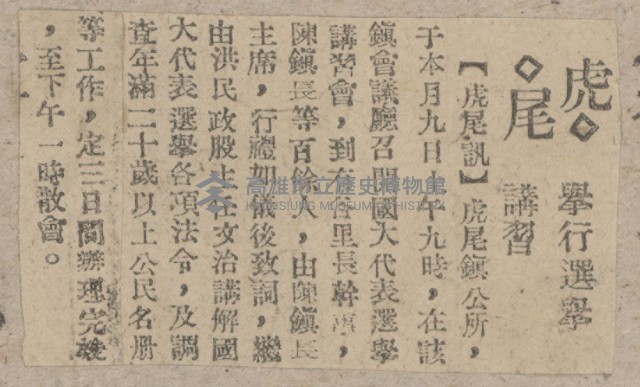 虎◇
◇尾
舉行選舉
講習
【虎尾訊】虎尾鎭公所，
于本月九日上午九時，在該
鎭會議廳召開國大代表選舉
講習會，到有各里長幹事，
陳鎭長等百餘人，由陳鎭長
主席，行禮如儀後致詞，繼
由洪民政股主任文治講解國
大代表選舉各項法令，及調
查年滿二十歲以上公民名册
等工作，定三日間辦理完竣
，至下午一時散會。
高雄市立歷史博物館
KAOHSIUNG MUSEUM OF HISTORY